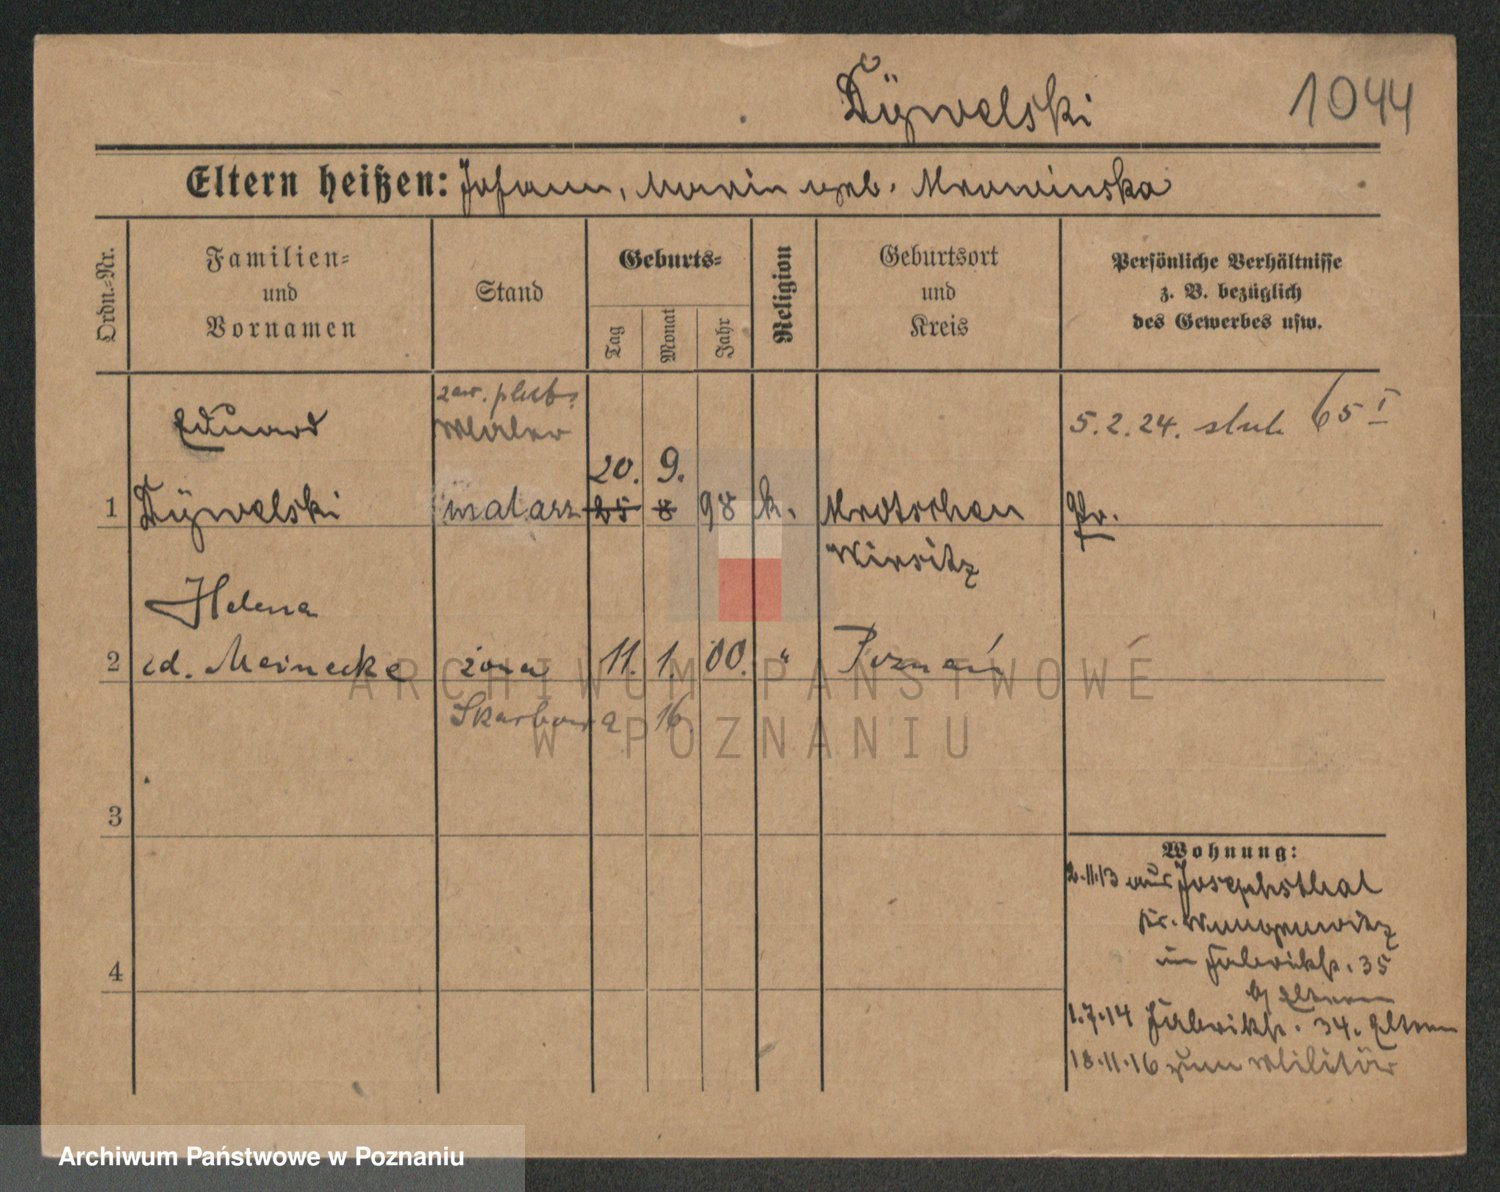 Dÿwelski
1044
Eltern heißen: Johann, Maria geb. Mrowinska
Ordn.-Nr.
Familien-
und
Vornamen
Stand
Geburts-
Tag
Monat
Jahr
Religion
Geburtsort
und
Kreis
Persönliche Verhältnisse
z. B. bezüglich
des Gewerbes usw.
Eduard
Maler
5.2.24. 65 I
20. 9.
1 Dÿwelski malarz 25 8 98 k. Mrotschen
Wirsitz
Helena
2 zd. Meinecke żona 11. 1. 00. " Poznań
Skarbowa 16
3
4
Wohnung:
2.11.13 aus Josephsthal
Kr. Wongrowitz
in Fabrikstr. 35
b/ Eltern
1.7.14 Fabrikstr. 34. Eltern
18.11.16 zum Militär
ARCHIWUM PAŃSTWOWE
W POZNANIU
Archiwum Państwowe w Poznaniu